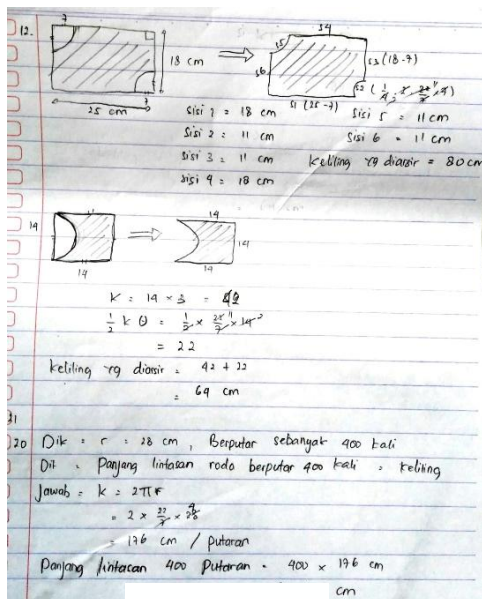 12.
7
18 cm
25 cm
7
S4
S5
S3 (18-7)
S6
S2 (1/4 . 2 . 22/7 . 7)
S1 (25-7)
Sisi 1 = 18 cm
Sisi 5 = 11 cm
Sisi 2 = 11 cm
Sisi 6 = 11 cm
Sisi 3 = 11 cm
Keliling yg diarsir = 80 cm
Sisi 4 = 18 cm
14
14
14
14
14
K = 14 x 3 = 42
1/2 k O = 1/2 x 22/7 x 14
= 22
Keliling yg diarsir = 42 + 22
= 64 cm
20 Dik = r = 28 cm, Berputar sebanyak 400 kali
Dit = Panjang lintasan roda berputar 400 kali = keliling
Jawab = K = 2πr
= 2 x 22/7 x 28
= 176 cm / putaran
Panjang lintasan 400 Putaran = 400 x 176 cm
cm